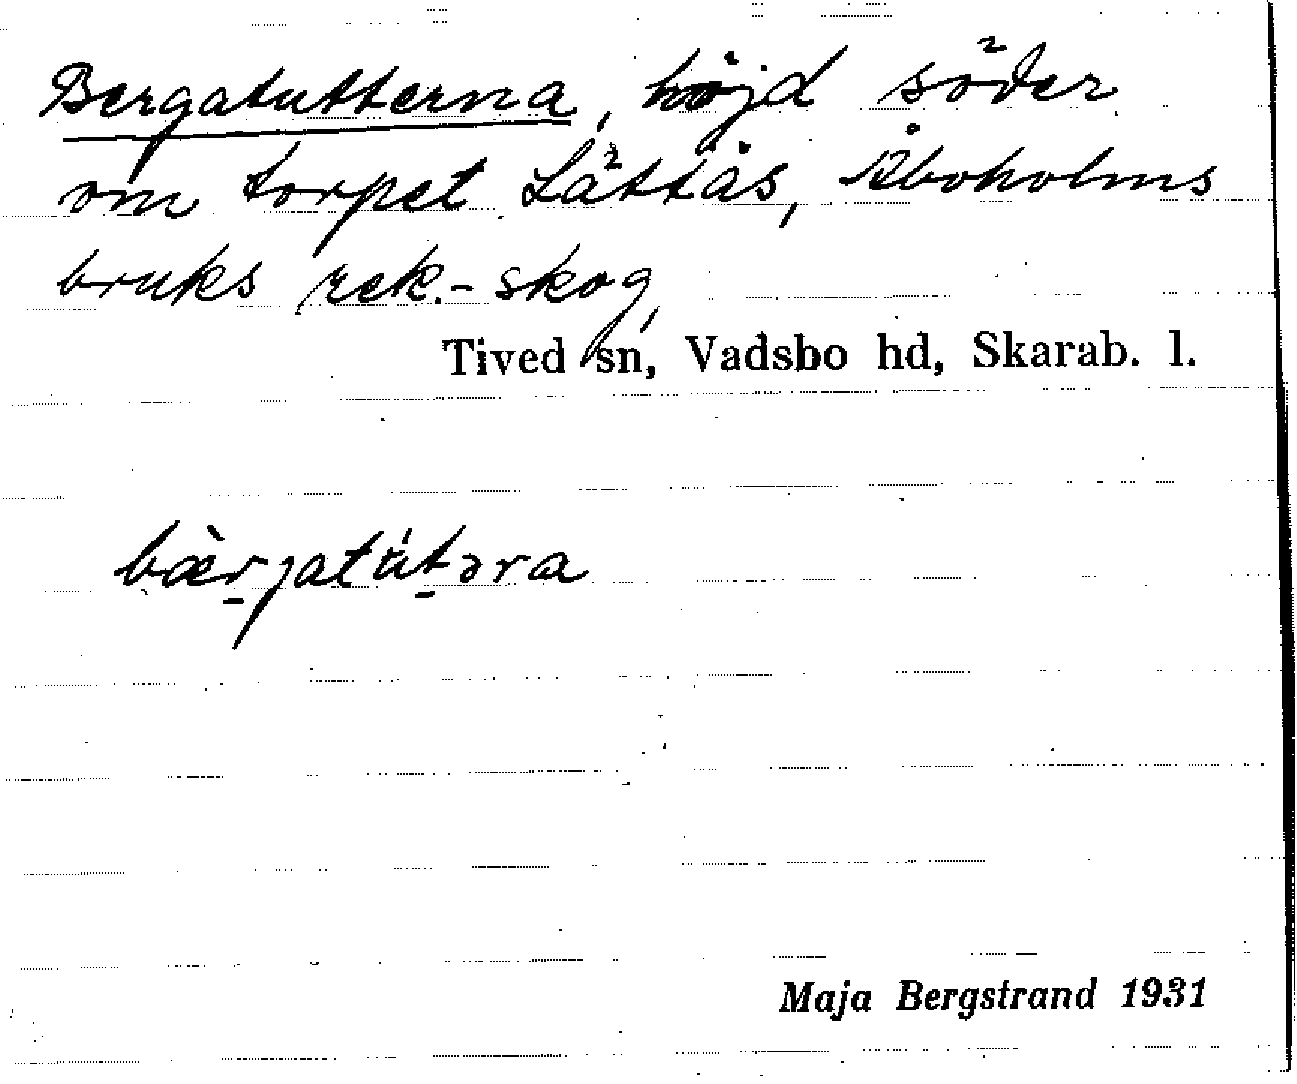 Bergatutterna, höjd söder
om torpet Lättås, Åboholms
bruks rek.-skog,
Tived sn, Vadsbo hd, Skarab. l.
bær̠jatut̠əra
Maja Bergstrand 1931